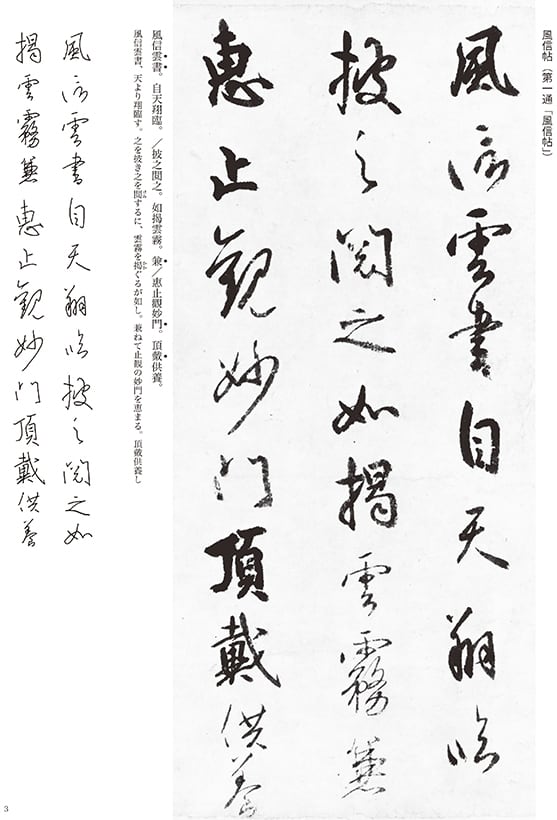 風信帖(第一通「風信帖」)
風信雲書自天翔臨
披之閲之如揭雲霧兼
恵止觀妙門頂戴供養
風信雲書。自天翔臨。/披之閲之。如揭雲霧。兼/惠止觀妙門。頂戴供養。
風信雲書、天より翔臨す。之を披き之を閲するに、雲霧を揭ぐるが如し。兼ねて止観の妙門を恵まる。頂戴供養し
風信雲書自天翔臨披之閲之如
揭雲霧兼恵止觀妙門頂戴供養
3